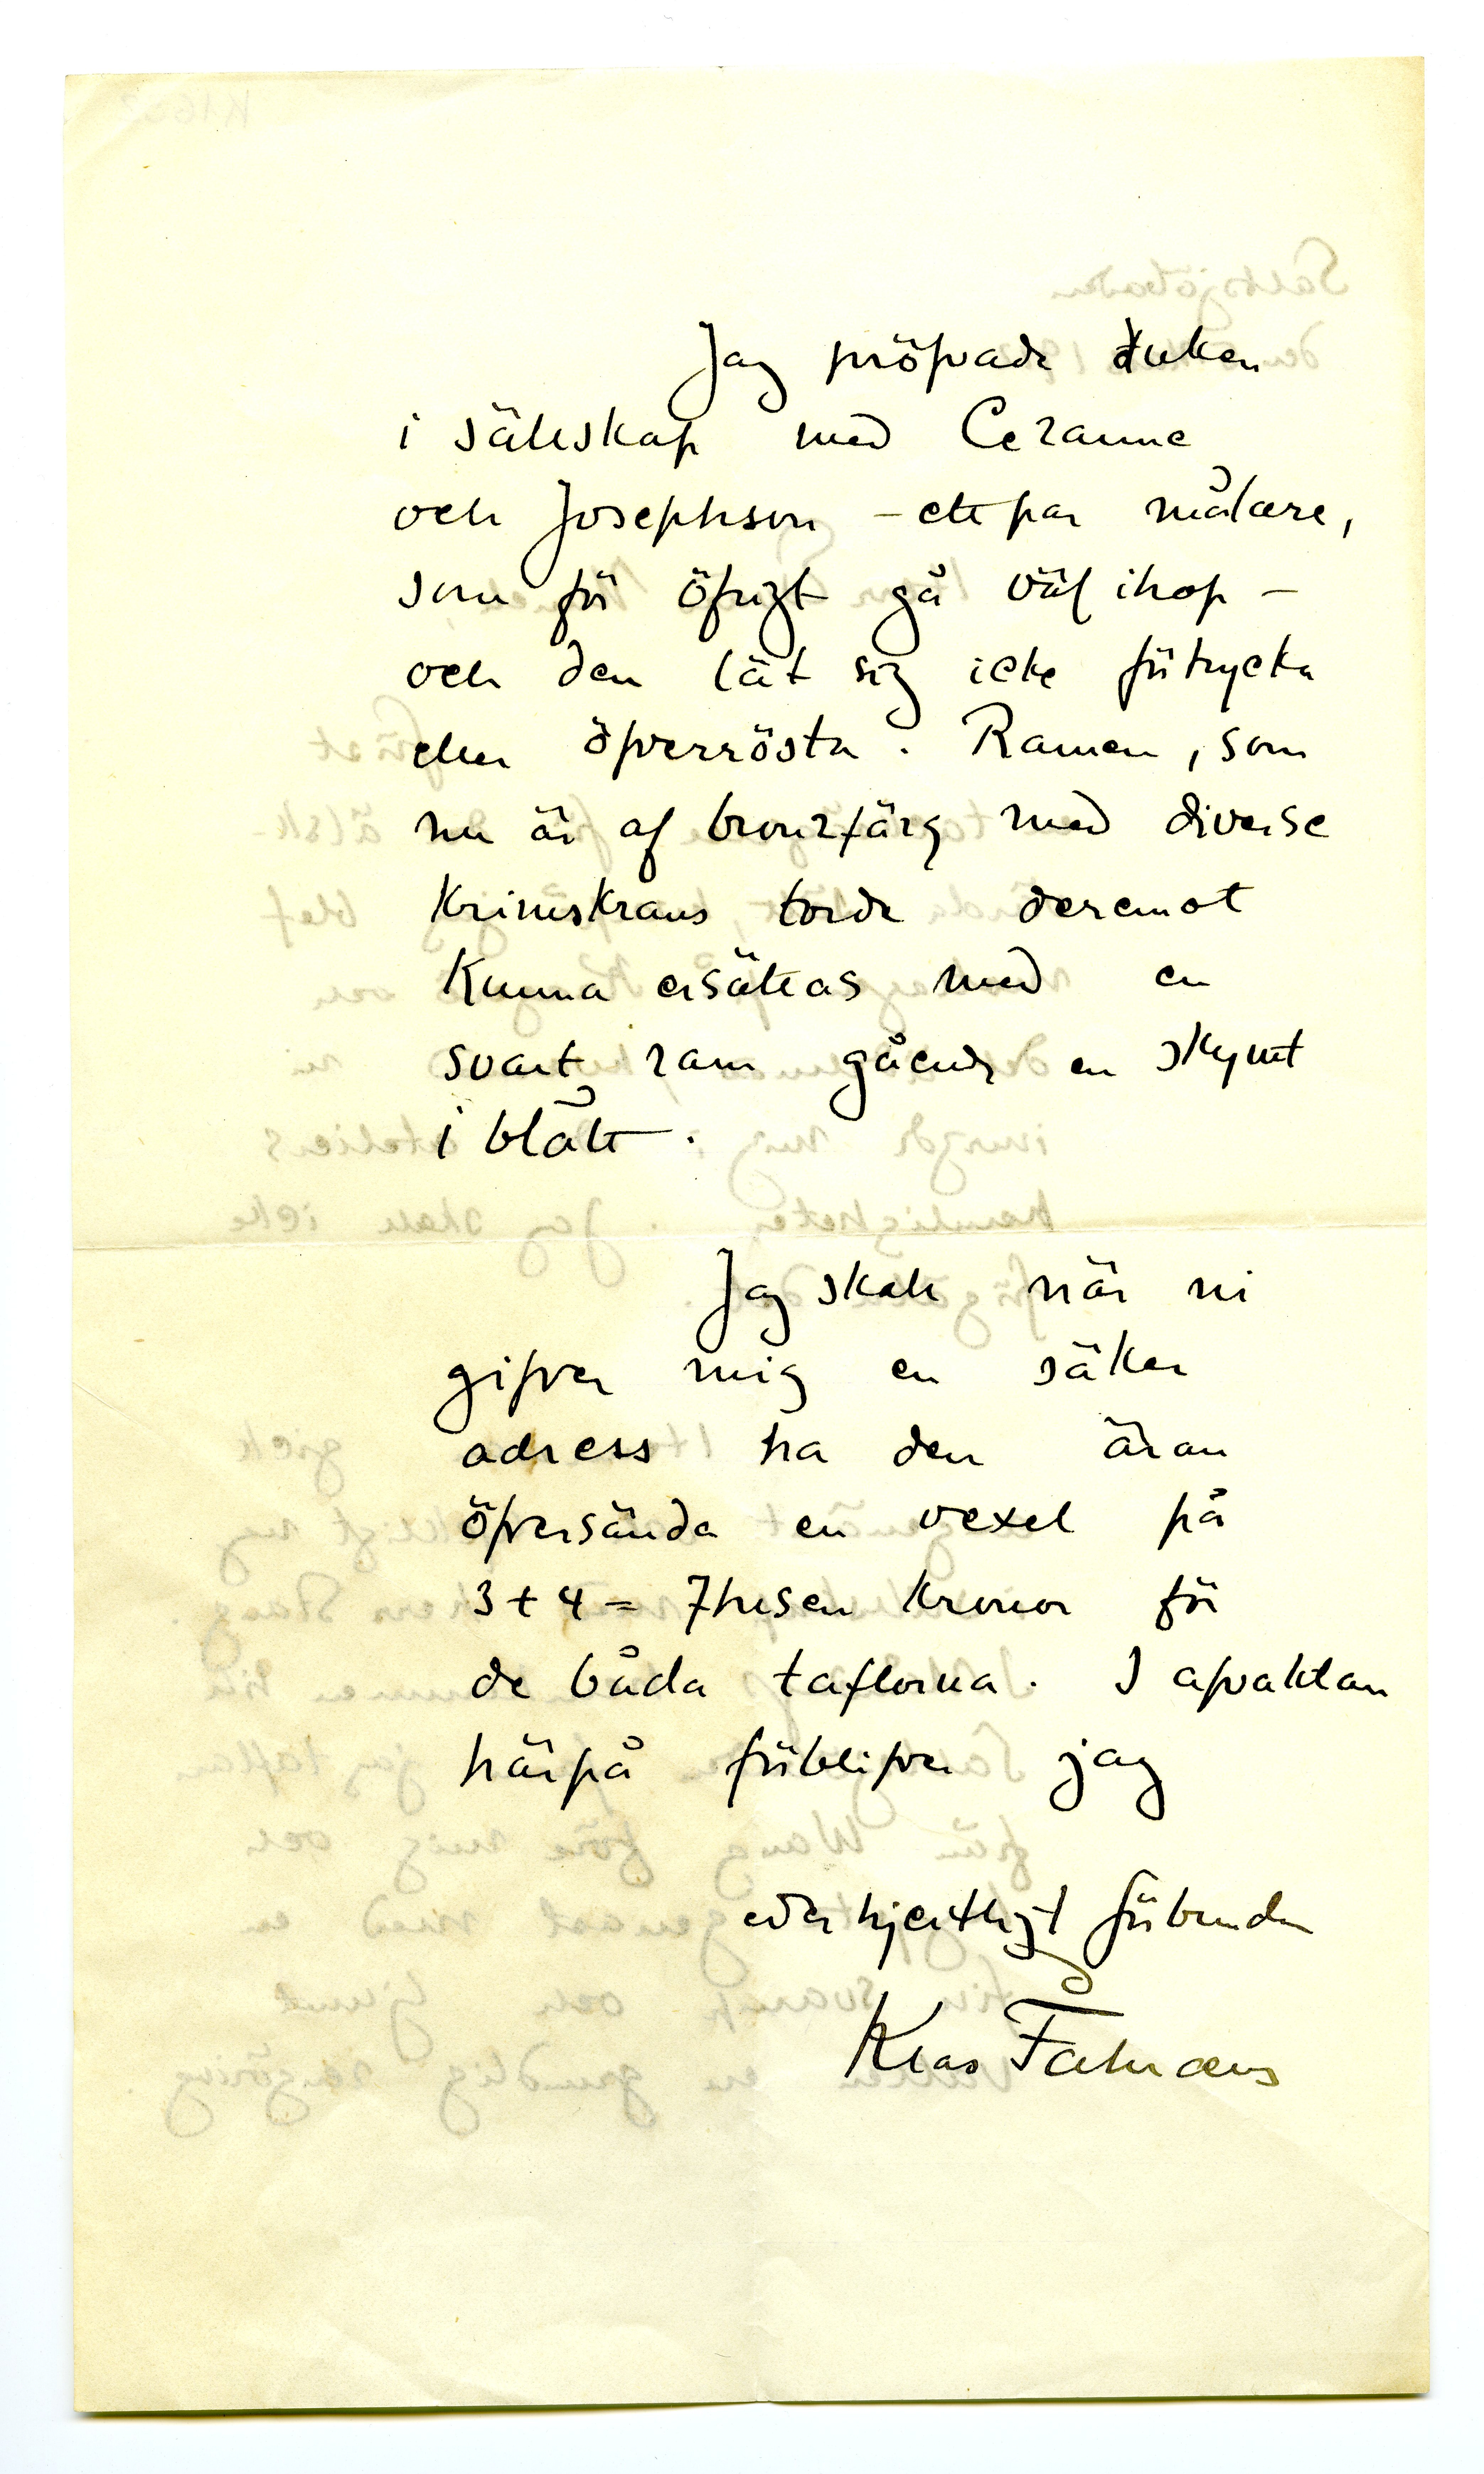 Jag pröfvade duken
i sällskap med Cezanne
och Josephson – ett par målare,
som för öfrigt gå väl ihop –
och den lät sig icke förtrycka
eller öfverrösta. Ramen, som
nu är af bronzfärg med diverse
krimskrams torde deremot
kunna ersättas med en
svart ram gående en skymt
i blått.
Jag skall när ni
gifver mig en säker
adress ha den äran
öfversända en vexel på
3 + 4 = 7tusen kronor för
de båda taflorna. I afvaktan
härpå förblifver jag
eder hjertligt förbundne
Klas Fåhræus